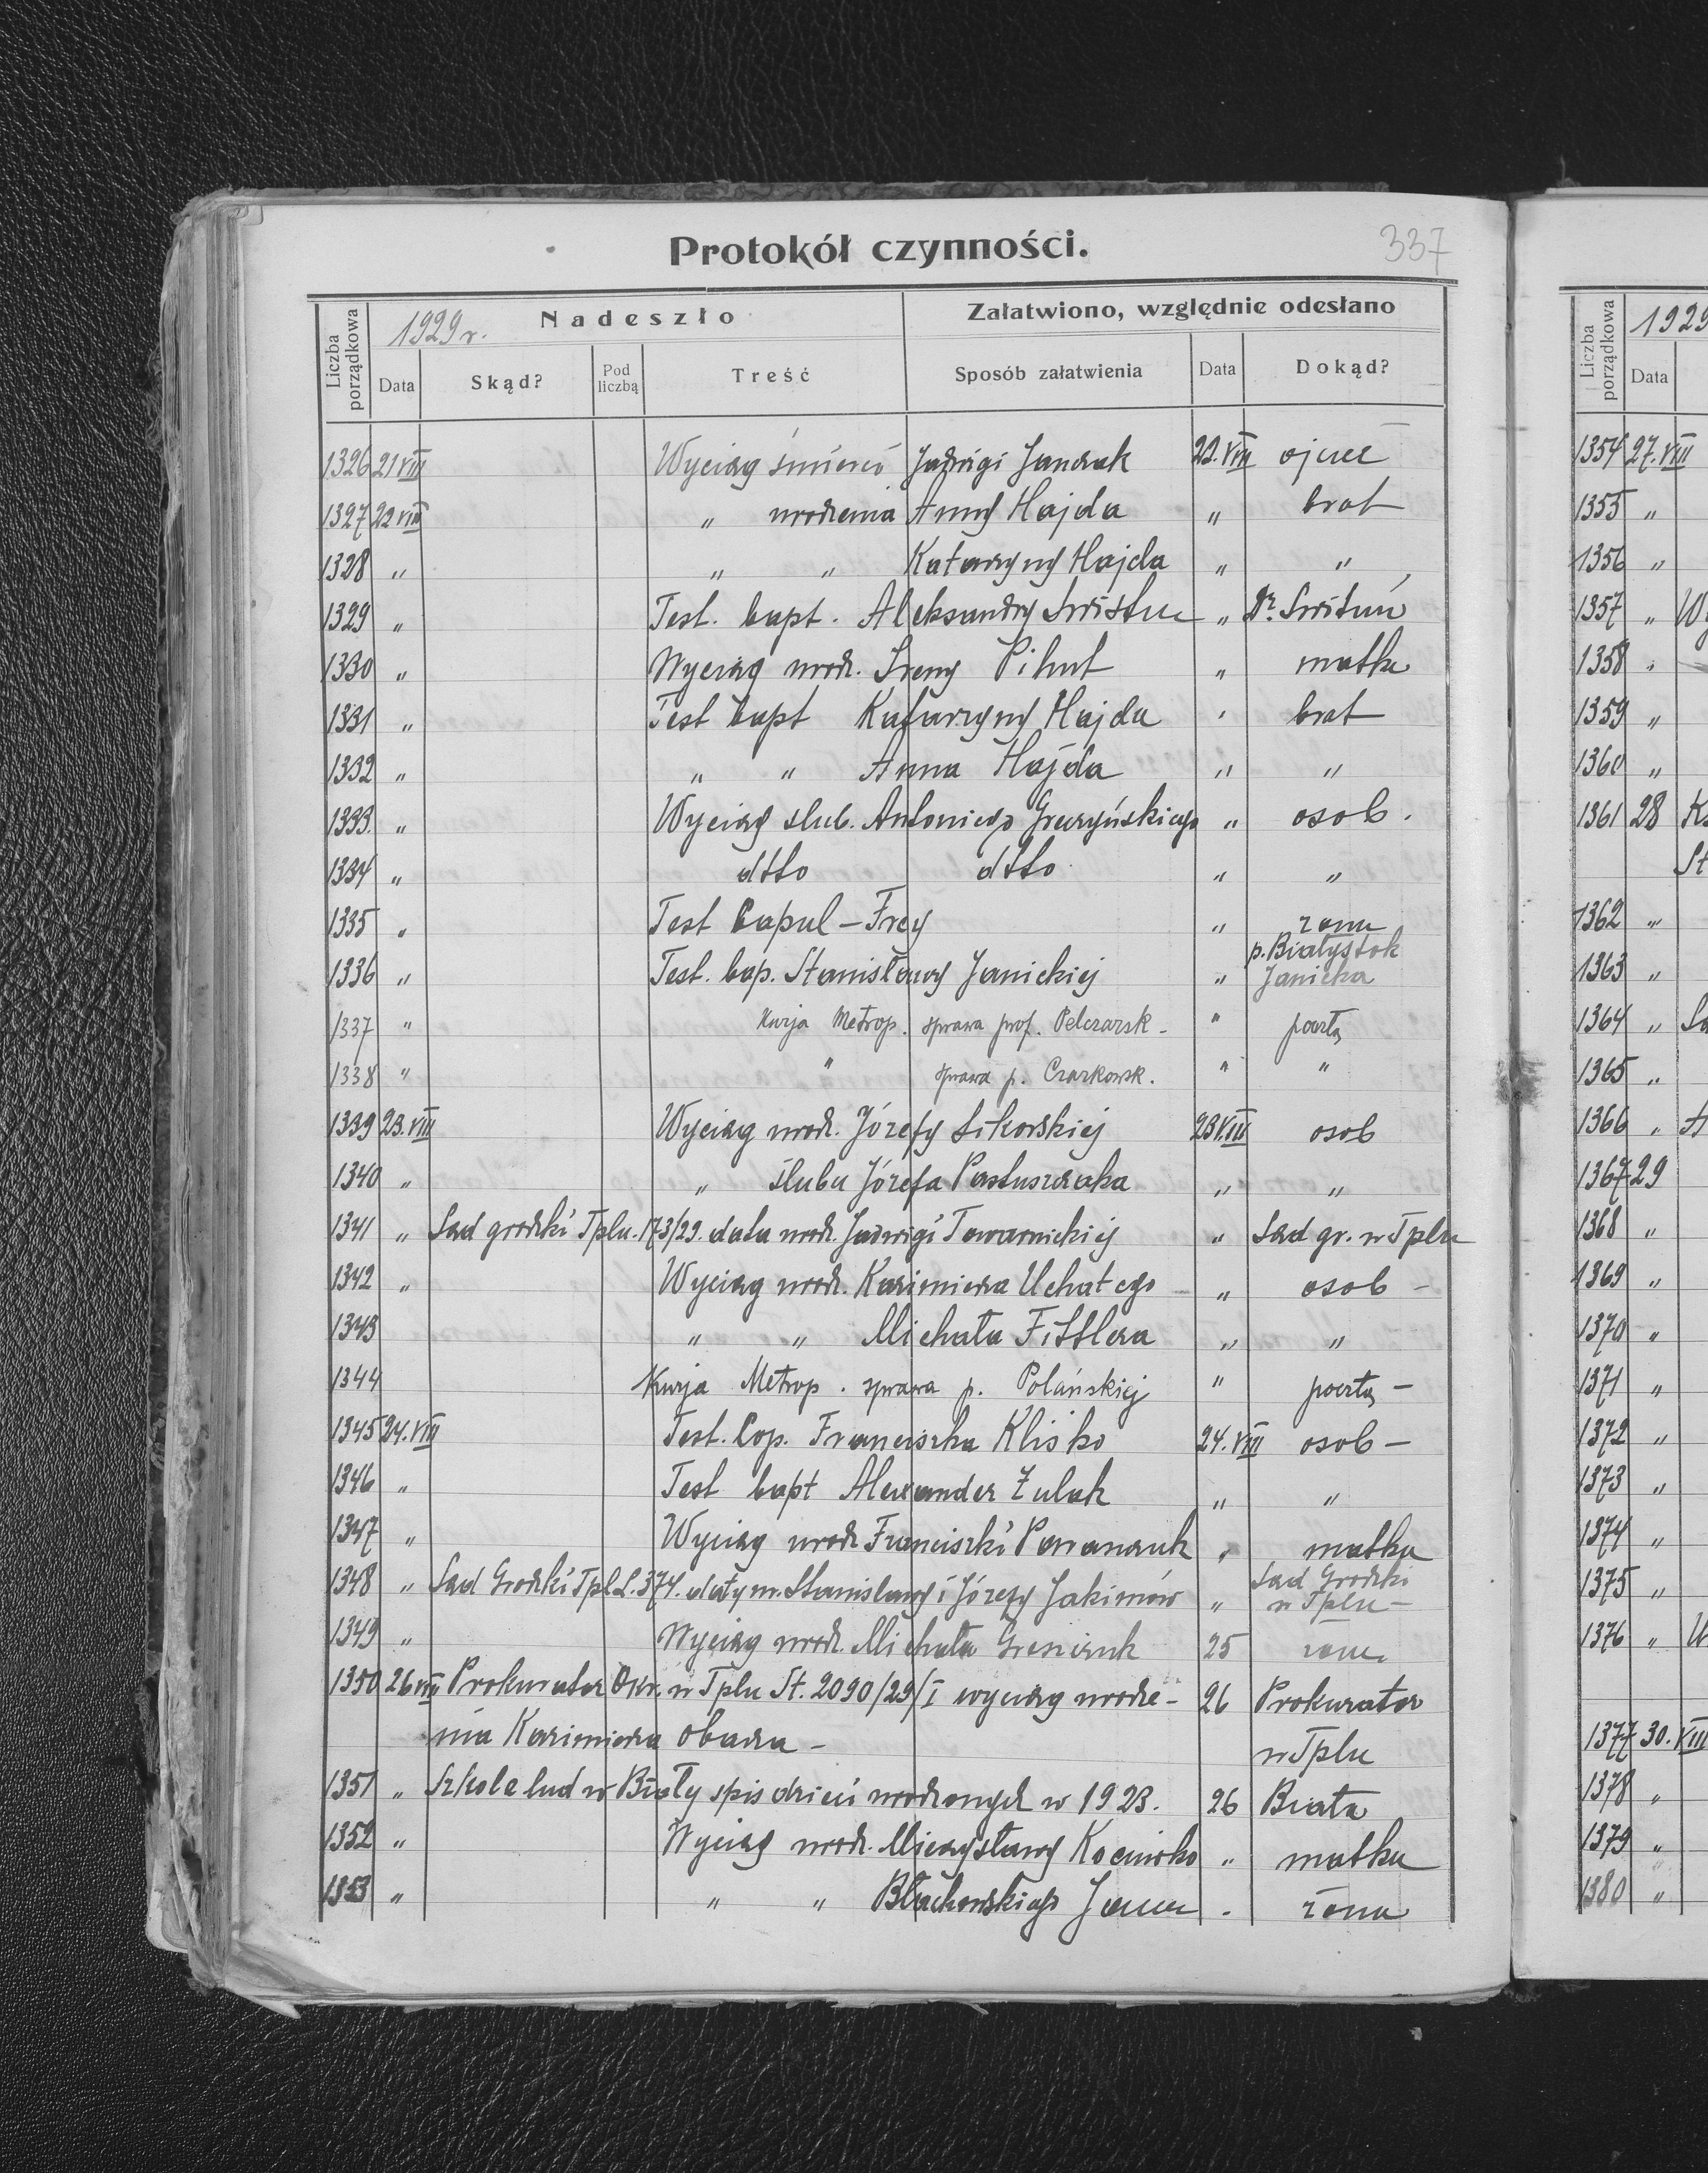 Protokół czynności.
337
Liczba porządkowa
1929 r.
Nadeszło
Załatwiono, względnie odesłano
Data
Skąd?
Pod liczbą
Treść
Sposób załatwienia
Data
Dokąd?
1326 21 VIII Wyciąg śmierci Jadwigi 22. VIII ojciec
1327 22 VIII " urodzenia Anny Hajda " brat
1328 " " " Katarzyny Hajda " "
1329 " Test. bapt. Aleksandry " Dr.
1330 " Wyciąg urodz. Ireny Pihut " matka
1331 " Test bapt Katarzyny Hajda " brat
1332 " " " Anna Hajda " "
1333. " Wyciąg slub. Antoniego Gruzyńskiego " osob.
1334 " dtto dtto " "
1335 " Test Copul - Frey " żona
1336 " Test. bap. Stanisławy Janickiej " p. Białystok
Janicka
1337 " Kurja Metrop. sprawa prof. Pelczarsk- " pocztą
1338 " " sprawa p. Czarkowsk. " "
1339 23. VIII Wyciąg urodz. Józefy Sikorskiej 23 VIII osob
1340 " " ślubu Józefa Pastuszczaka " "
1341 " Sąd grodzki Tplu. 173/29. data urodz. Jadwigi Towarnickiej " Sąd gr. w Tplu
1342 " Wyciąg urodz. Kazimierza Uchatego " osob -
1343 " " Michała Fittlera " "
1344 Kurja Metrop. sprawa p. Polańskiej " pocztą -
1345 24. VIII Test. Cop. Franciszka Kliśko 24. VIII osob -
1346 " Test bapt Alexander Żulak " "
1347 " Wyciąg urodz Franciszki " matka
1348 " Sąd Grodzki Tpl L. 374. daty ur. Stanisławy i Józefy Jakimów " Sąd Grodzki
w Tplu -
1349 " Wyciąg urodz. Michała 25 żona
1350 26 VIII Prokurator Okr. w Tplu St. 2090/29/I wyciąg urodze- 26 Prokurator
nia Kazimierza Obacza - w Tplu
1351 " Szkole lud w Biały spis dzieci urodzonych w 1923. 26 Biała
1352 " Wyciąg urodz. Mieczysławy " matka
1353 " " " Błachowskiego Jana " żona
Liczba porządkowa
1929
Data
1354 27. VIII
1355 "
1356 "
1357 " Wy
1358 "
1359 "
1360 "
1361 28 Ks
St
1362 "
1363 "
1364 " Są
1365 "
1366 "
1367 29
1368 "
1369 "
1370 "
1371 "
1372 "
1373 "
1374 "
1375 "
1376 "
1377 30. VIII
1378 "
1379 "
1380 "